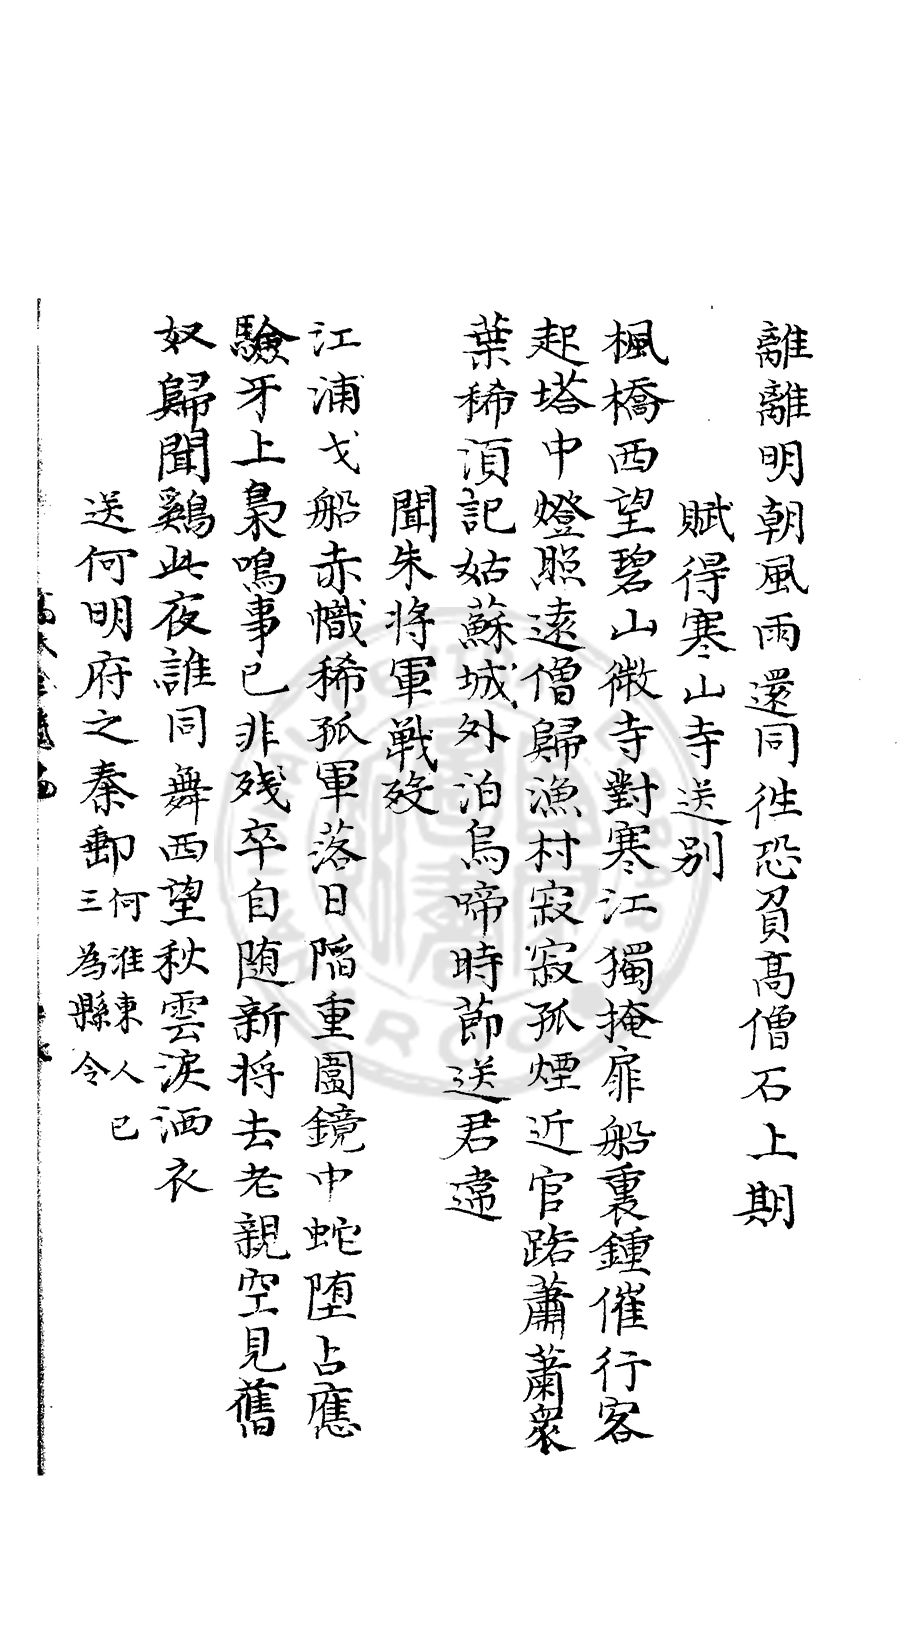 離離明朝風雨還同徃恐負髙僧石上期
賦得寒山寺送别
楓橋西望碧山微寺對寒江獨掩扉船裏鍾催行客
起塔中燈照逺僧歸漁村寂寂孤煙近官路蕭蕭衆
葉稀湏記姑蘇城外泊烏啼時莭送君違
聞朱将軍戰殁
江浦戈船赤幟稀孤軍落日䧟重圍鏡中蛇堕占應
驗牙上梟鳴事已非殘卒自随新将去老親空見舊
奴歸聞鷄此夜誰同舞西望秋雲淚洒衣
送何明府之秦郵何淮東人已三為縣令